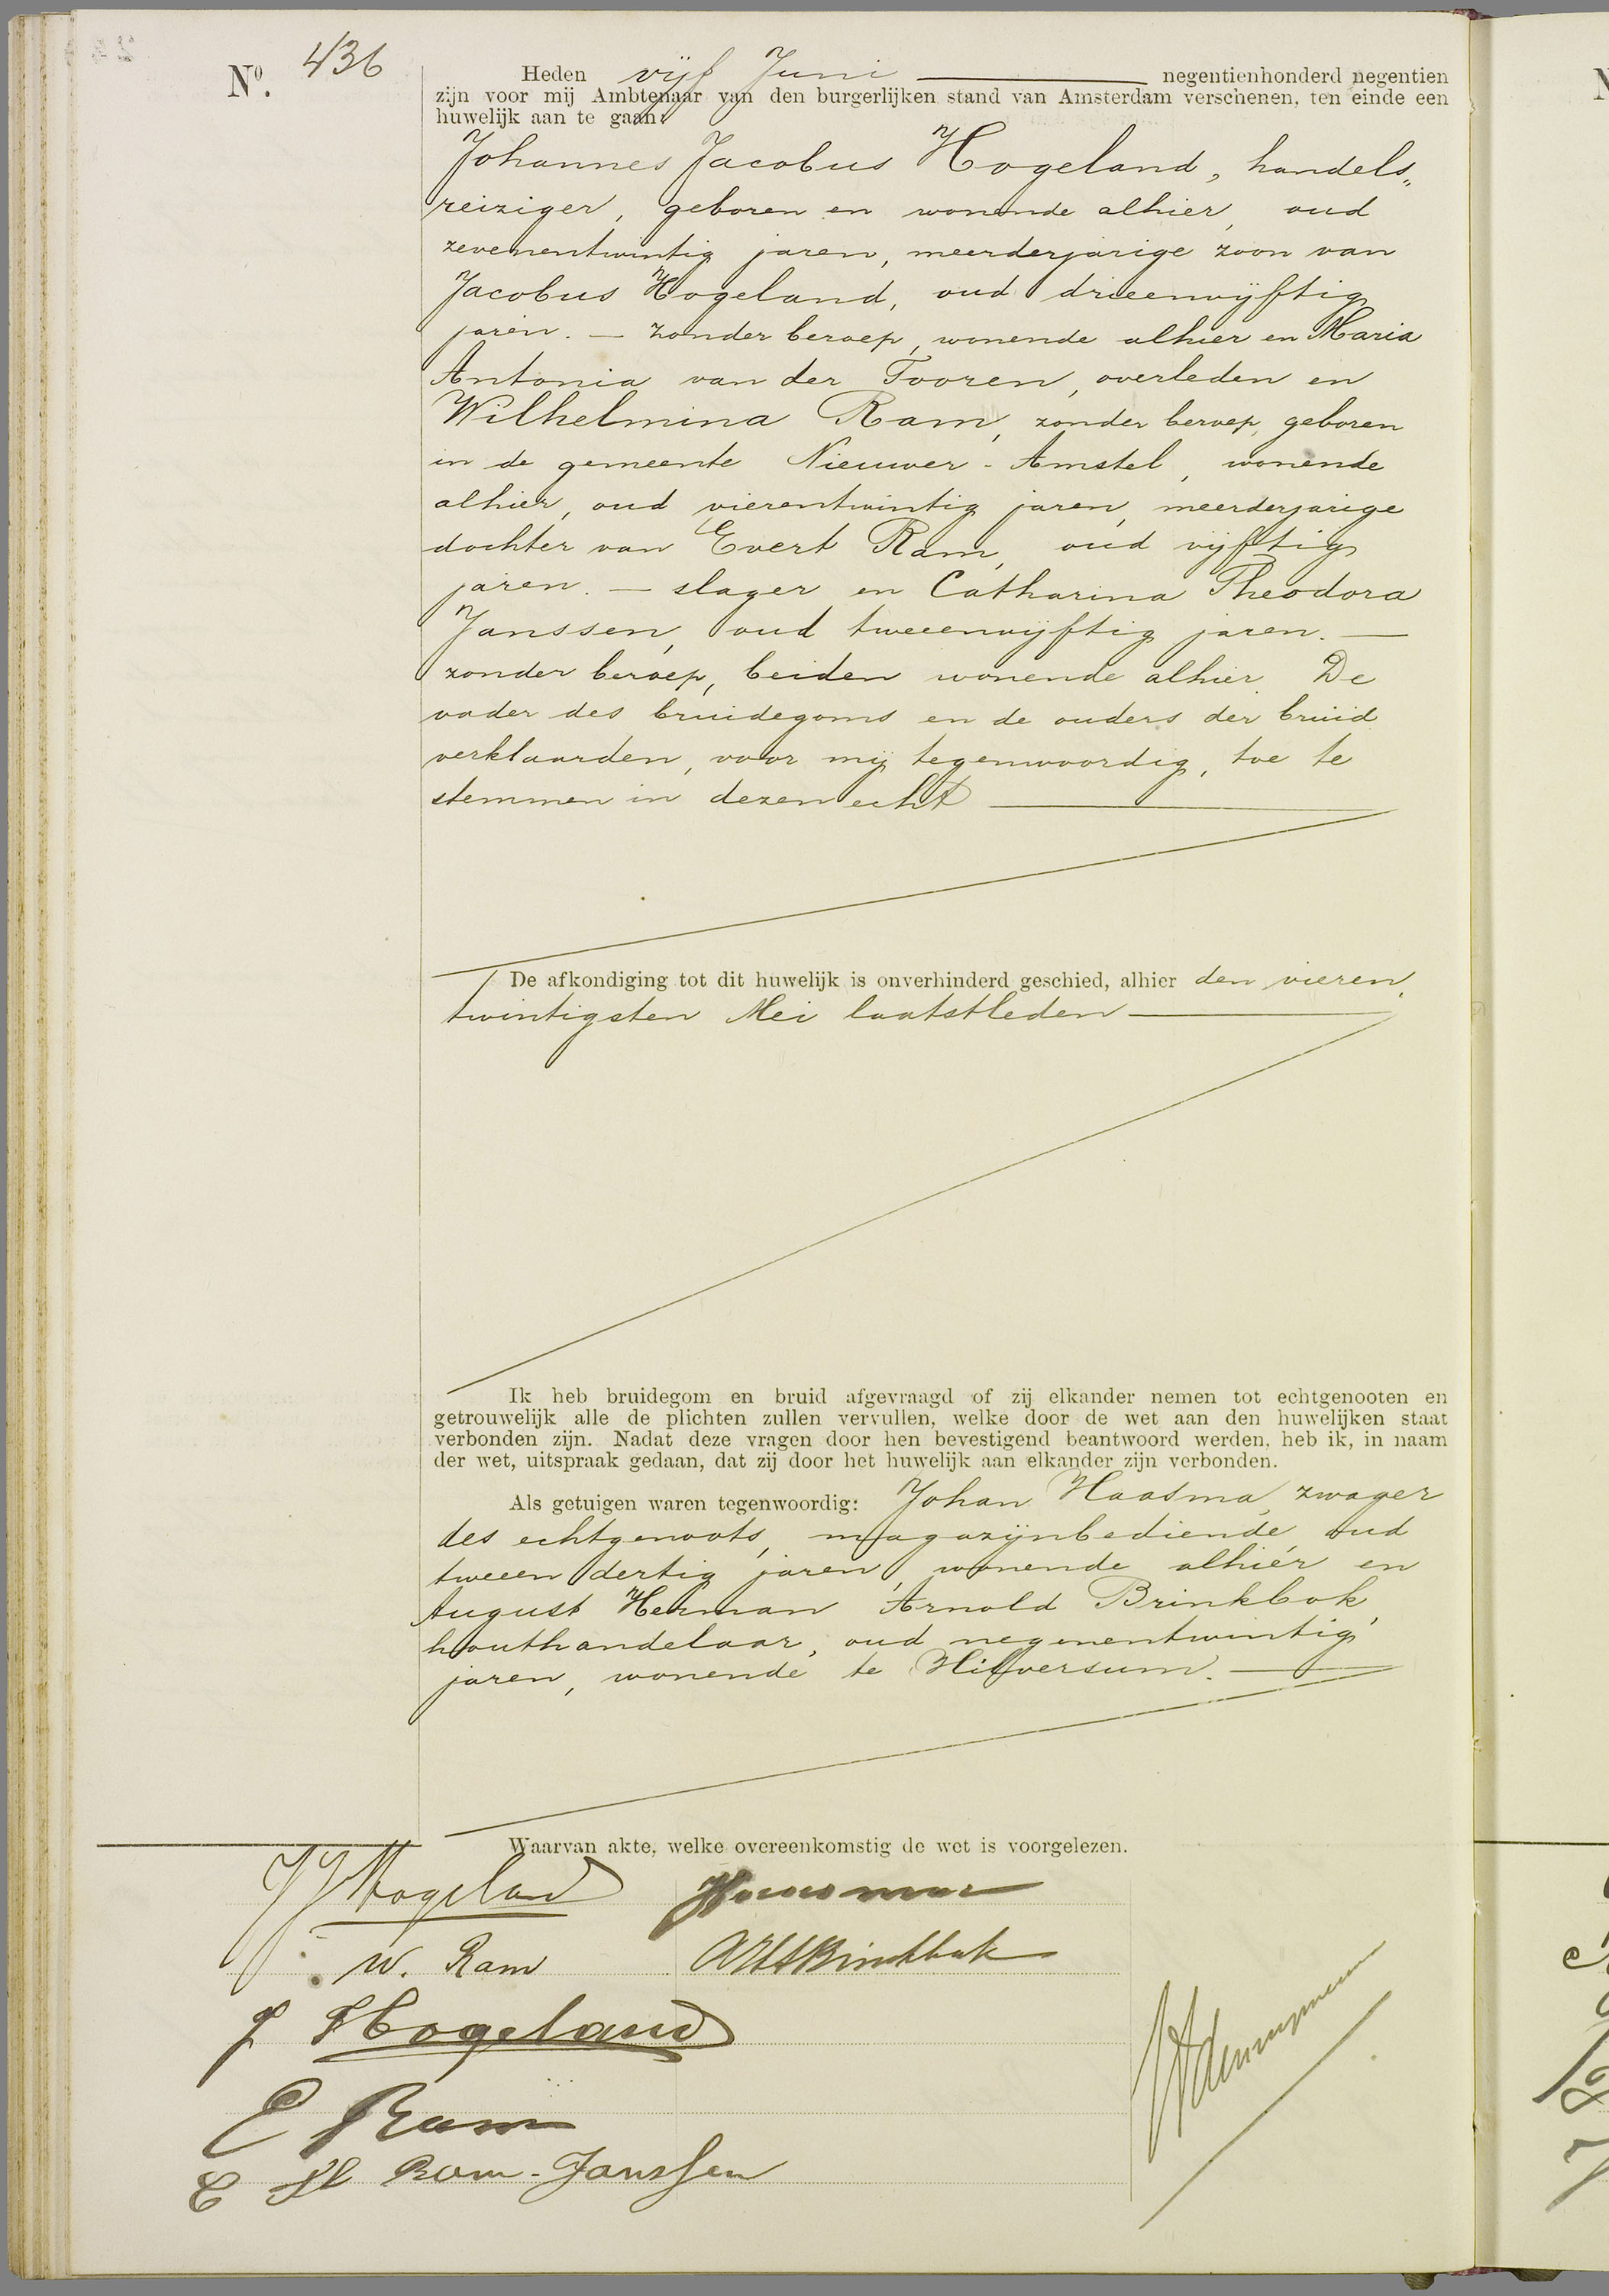 Nº. 436
Heden vijf Juni negentienhonderd negentien
zijn voor mij Ambtenaar van den burgerlijken stand van Amsterdam verschenen, ten einde een
huwelijk aan te gaan:
Johannes Jacobus Hogeland, handels„
reiziger, geboren en wonende alhier, oud
zevenentwintig jaren, meerderjarige zoon van
Jacobus Hogeland, oud drieenvijftig
jaren. — zonder beroep, wonende alhier en Maria
Antonia van der Tooren, overleden en
Wilhelmina Ram, zonder beroep, geboren
in de gemeente Nieuwer-Amstel, wonende
alhier, oud vierentwintig jaren, meerderjarige
dochter van Evert Ram, oud vijftig
jaren. — slager en Catharina Theodora
Janssen, oud tweeenvijftig jaren. —
zonder beroep, beiden wonende alhier. De
vader des bruidegoms en de ouders der bruid
verklaarden, voor mij tegenwoordig, toe te
stemmen in dezen echt
De afkondiging tot dit huwelijk is onverhinderd geschied, alhier den vieren
twintigsten Mei laatstleden
Ik heb bruidegom en bruid afgevraagd of zij elkander nemen tot echtgenooten en
getrouwelijk alle de plichten zullen vervullen, welke door de wet aan den huwelijken staat
verbonden zijn. Nadat deze vragen door hen bevestigend beantwoord werden, heb ik, in naam
der wet, uitspraak gedaan, dat zij door het huwelijk aan elkander zijn verbonden.
Als getuigen waren tegenwoordig: Johan Haasma, zwager
des echtgenoots, magazijnbediende, oud
tweeen dertig jaren, wonende alhier en
August Herman Arnold Brinkbok,
houthandelaar, oud negenentwintig
jaren, wonende te Hilversum.
Waarvan akte, welke overeenkomstig de wet is voorgelezen.
JJ Hogeland Haasma
W. Ram AHA Brinkbok
J Hogeland
E Ram
C Th Ram-Janssen